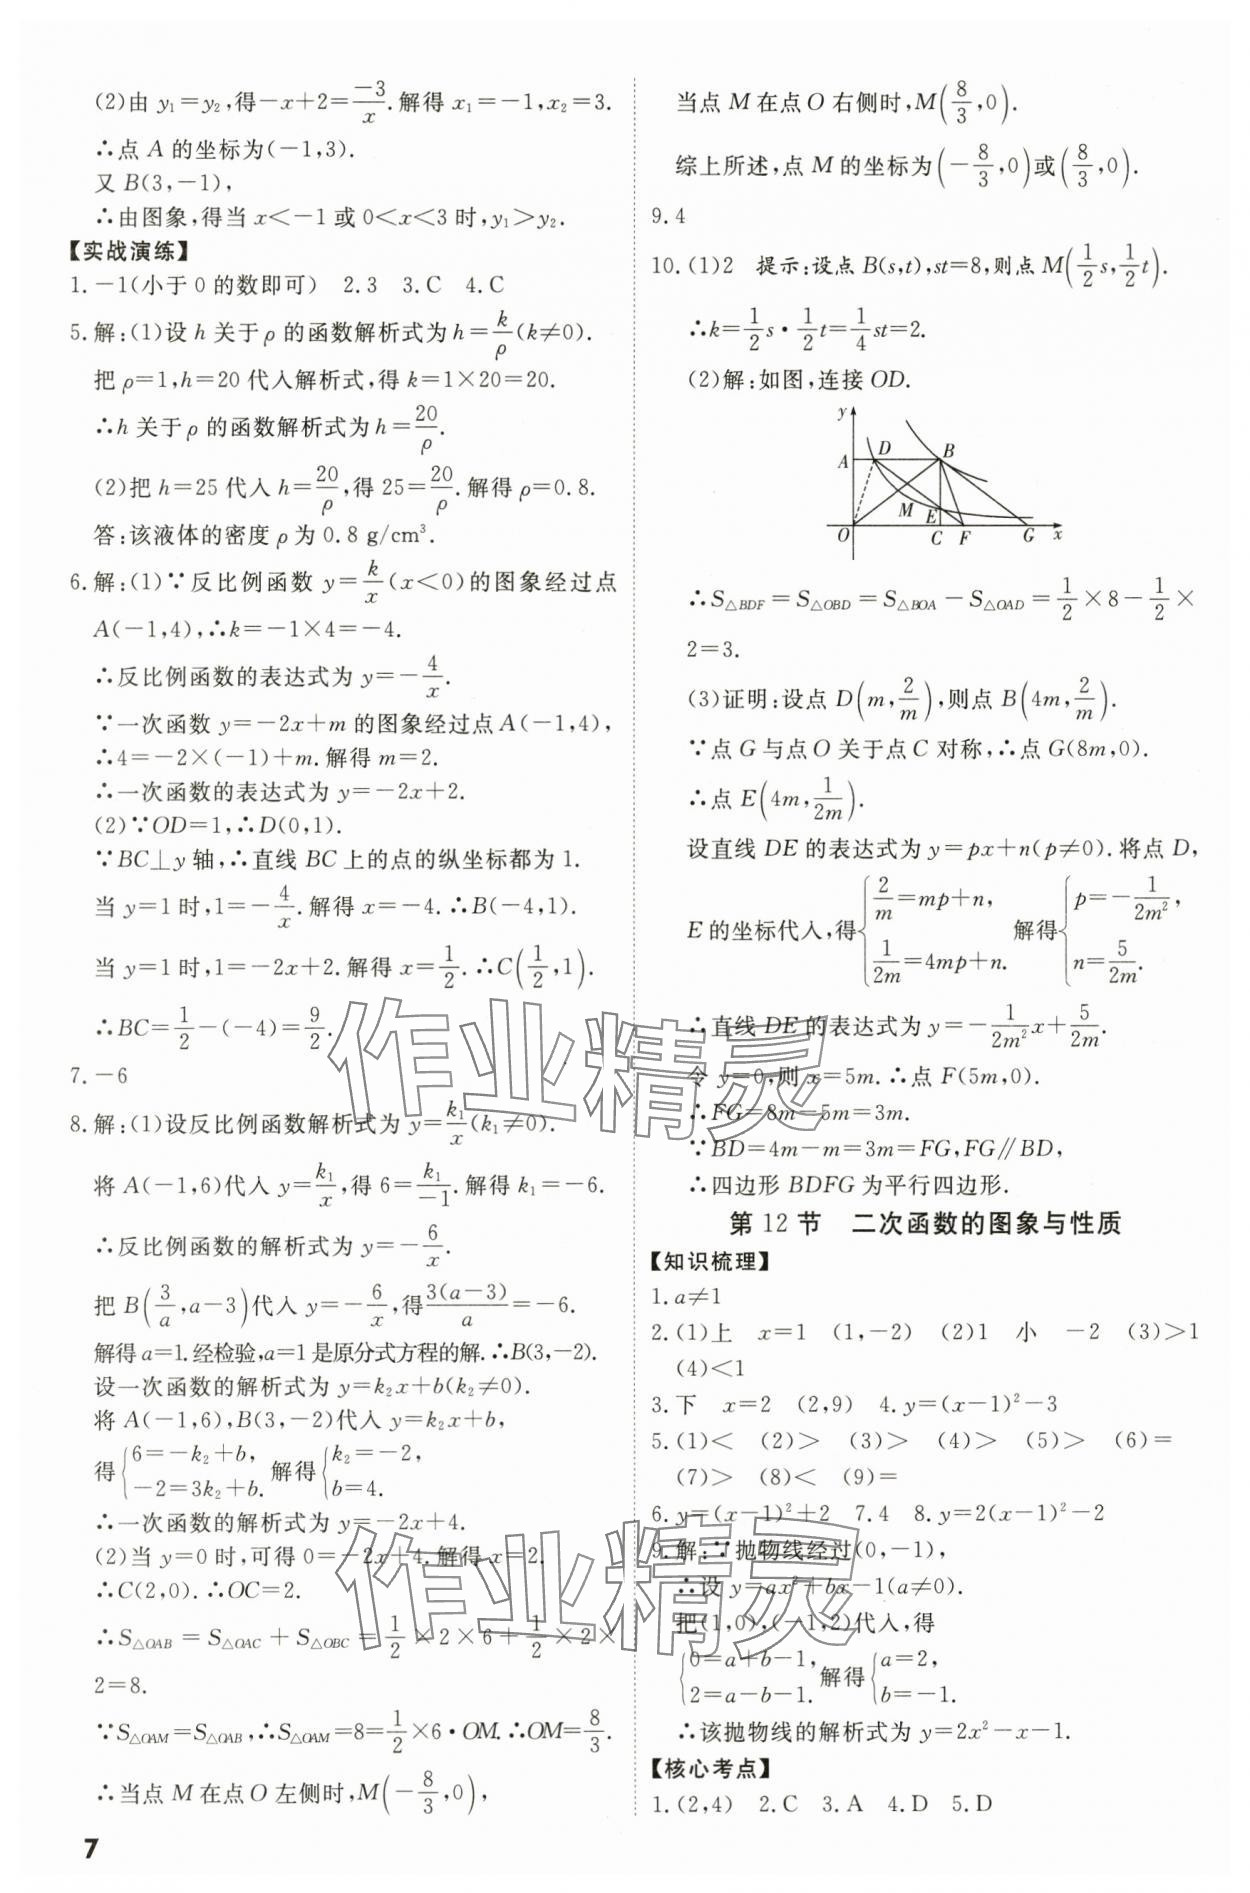 (2)由 y₁=y₂,得-x+2=\frac{-3}{x}.解得 x₁=-1,x₂=3.
∴点 A 的坐标为(-1,3).
又 B(3,-1),
∴由图象,得当 x<-1 或 0<x<3 时,y₁>y₂.
【实战演练】
1.-1(小于 0 的数即可) 2.3 3.C 4.C
5.解:(1)设 h 关于ρ的函数解析式为 h=\frac{k}{ρ}(k≠0).
把 ρ=1,h=20 代入解析式,得 k=1×20=20.
∴h 关于ρ的函数解析式为 h=\frac{20}{ρ}.
(2)把 h=25 代入 h=\frac{20}{ρ},得 25=\frac{20}{ρ}.解得ρ=0.8.
答:该液体的密度ρ为 0.8 g/cm³.
6.解:(1)∵反比例函数 y=\frac{k}{x}(x<0)的图象经过点
A(-1,4),∴k=-1×4=-4.
∴反比例函数的表达式为 y=-\frac{4}{x}.
∵一次函数 y=-2x+m 的图象经过点 A(-1,4),
∴4=-2×(-1)+m.解得 m=2.
∴一次函数的表达式为 y=-2x+2.
(2)∵OD=1,∴D(0,1).
∵BC⊥y 轴,∴直线 BC 上的点的纵坐标都为 1.
当 y=1 时,1=-\frac{4}{x}.解得 x=-4.∴B(-4,1).
当 y=1 时,1=-2x+2.解得 x=\frac{1}{2}.∴C(\frac{1}{2},1).
∴BC=\frac{1}{2}-(-4)=\frac{9}{2}.
7.-6
8.解:(1)设反比例函数解析式为 y=\frac{k₁}{x}(k₁≠0).
将 A(-1,6)代入 y=\frac{k₁}{x},得 6=\frac{k₁}{-1}.解得 k₁=-6.
∴反比例函数的解析式为 y=-\frac{6}{x}.
把 B(\frac{3}{a},a-3)代入 y=-\frac{6}{x},得\frac{3(a-3)}{a}=-6.
解得 a=1.经检验,a=1 是原分式方程的解.∴B(3,-2).
设一次函数的解析式为 y=k₂x+b(k₂≠0).
将 A(-1,6),B(3,-2)代入 y=k₂x+b,
得{6=-k₂+b, -2=3k₂+b. 解得{k₂=-2, b=4.
∴一次函数的解析式为 y=-2x+4.
(2)当 y=0 时,可得 0=-2x+4.解得 x=2.
∴C(2,0).∴OC=2.
∴S△OAB=S△OAC+S△OBC=\frac{1}{2}×2×6+\frac{1}{2}×2×
2=8.
∵S△OAM=S△OAB,∴S△OAM=8=\frac{1}{2}×6·OM.∴OM=\frac{8}{3}.
∴当点 M 在点 O 左侧时,M(-\frac{8}{3},0),
7
当点 M 在点 O 右侧时,M(\frac{8}{3},0).
综上所述,点 M 的坐标为(-\frac{8}{3},0)或(\frac{8}{3},0).
9.4
10.(1)2 提示:设点 B(s,t),st=8,则点 M(\frac{1}{2}s,\frac{1}{2}t).
∴k=\frac{1}{2}s·\frac{1}{2}t=\frac{1}{4}st=2.
(2)解:如图,连接 OD.
y
A D B
M E
O C F G x
∴S△BDF=S△OBD=S△BOA-S△OAD=\frac{1}{2}×8-\frac{1}{2}×
2=3.
(3)证明:设点 D(m,\frac{2}{m}),则点 B(4m,\frac{2}{m}).
∵点 G 与点 O 关于点 C 对称,∴点 G(8m,0).
∴点 E(4m,\frac{1}{2m}).
设直线 DE 的表达式为 y=px+n(p≠0).将点 D,
E 的坐标代入,得{\frac{2}{m}=mp+n, \frac{1}{2m}=4mp+n. 解得{p=-\frac{1}{2m²}, n=\frac{5}{2m}.
∴直线 DE 的表达式为 y=-\frac{1}{2m²}x+\frac{5}{2m}.
令 y=0,则 x=5m.∴点 F(5m,0).
∴FG=8m-5m=3m.
∵BD=4m-m=3m=FG,FG∥BD,
∴四边形 BDFG 为平行四边形.
第 12 节 二次函数的图象与性质
【知识梳理】
1.a≠1
2.(1)上 x=1 (1,-2) (2)1 小 -2 (3)>1
(4)<1
3.下 x=2 (2,9) 4.y=(x-1)²-3
5.(1)< (2)> (3)> (4)> (5)> (6)=
(7)> (8)< (9)=
6.y=(x-1)²+2 7.4 8.y=2(x-1)²-2
9.解:∵抛物线经过(0,-1),
∴设 y=ax²+bx-1(a≠0).
把(1,0),(-1,2)代入,得
{0=a+b-1, 2=a-b-1. 解得{a=2, b=-1.
∴该抛物线的解析式为 y=2x²-x-1.
【核心考点】
1.(2,4) 2.C 3.A 4.D 5.D
作业精灵
作业精灵